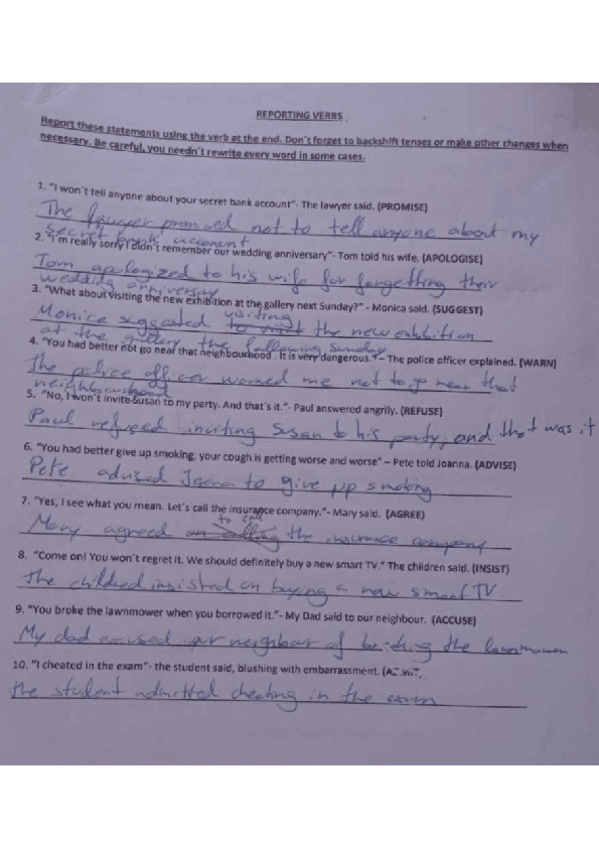 REPORTING VERBS
Report these statements using the verb at the end. Don't forget to backshift tenses or make other changes when
necessary. Be careful, you needn't rewrite every word in some cases.
1. "I won't tell anyone about your secret bank account"- The lawyer said. (PROMISE)
The lawyer promised not to tell anyone about my
secret bank account
2. "I'm really sorry I didn't remember our wedding anniversary"- Tom told his wife. (APOLOGISE)
Tom apologized to his wife for forgetting their
wedding anniversary
3. "What about visiting the new exhibition at the gallery next Sunday?" - Monica said. (SUGGEST)
visiting
Monica suggested to visit the new exhibition
at the gallery the following sunday
4. "You had better not go near that neighbourhood . It is very dangerous." – The police officer explained. (WARN)
The police officer warned me not to go near that
neighbourhood
5. "No, I won't invite Susan to my party. And that's it."- Paul answered angrily. (REFUSE)
Paul refused inviting Susan to his party, and that was it
6. "You had better give up smoking, your cough is getting worse and worse" – Pete told Joanna. (ADVISE)
Pete advised to give up smoking
7. "Yes, I see what you mean. Let's call the insurance company."- Mary said. (AGREE)
to call
Mary agreed on calling the insurance company
8. "Come on! You won't regret it. We should definitely buy a new smart TV." The children said. (INSIST)
the insisted on buying a new smart TV
9. "You broke the lawnmower when you borrowed it."- My Dad said to our neighbour. (ACCUSE)
My dad accused our neighbor of the
10. "I cheated in the exam"- the student said, blushing with embarrassment.
the student admitted cheating in the exam